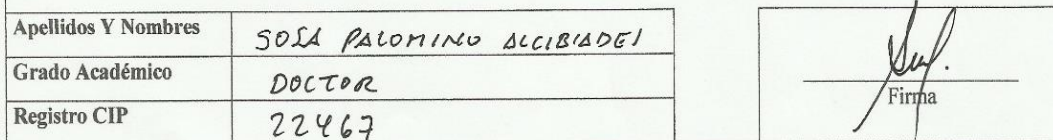 Apellidos Y Nombres SOSA PALOMINO ALCIBIADES
Grado Académico DOCTOR
Registro CIP 22467
Firma